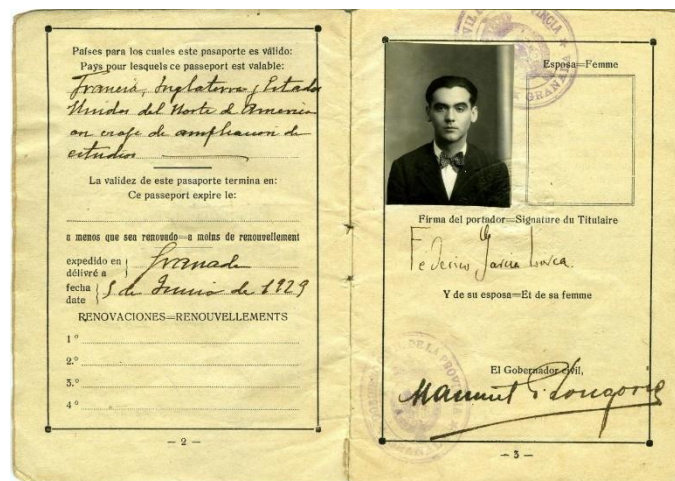 Países para los cuales este pasaporte es válido:
Pays pour lesquels ce passeport est valable:
Francia, Inglaterra y Estados
Unidos del Norte de America
en viaje de ampliacion de
estudios
La validez de este pasaporte termina en:
Ce passeport expire le:
a menos que sea renovado=a moins de renouvellement
expedido en
délivré a
Granada
fecha
date
5 de Junio de 1929
RENOVACIONES=RENOUVELLEMENTS
1º
2.º
3.º
4º
— 2 —
Esposa=Femme
Firma del portador=Signature du Titulaire
Federico García Lorca
Y de su esposa=Et de sa femme
El Gobernador civil,
— 3 —